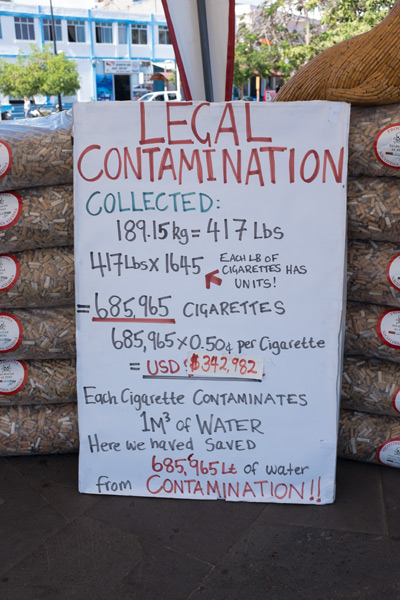 LEGAL
CONTAMINATION
COLLECTED:
189.15kg = 417 Lbs
417Lbs x 1645 EACH LB OF
CIGARETTES HAS
UNITS!
= 685,965 CIGARETTES
685,965 x 0.50¢ per Cigarette
= USD $342,982
Each Cigarette CONTAMINATES
1M³ of WATER
Here we haved SAVED
685,965 Lt of water
from CONTAMINATION!!